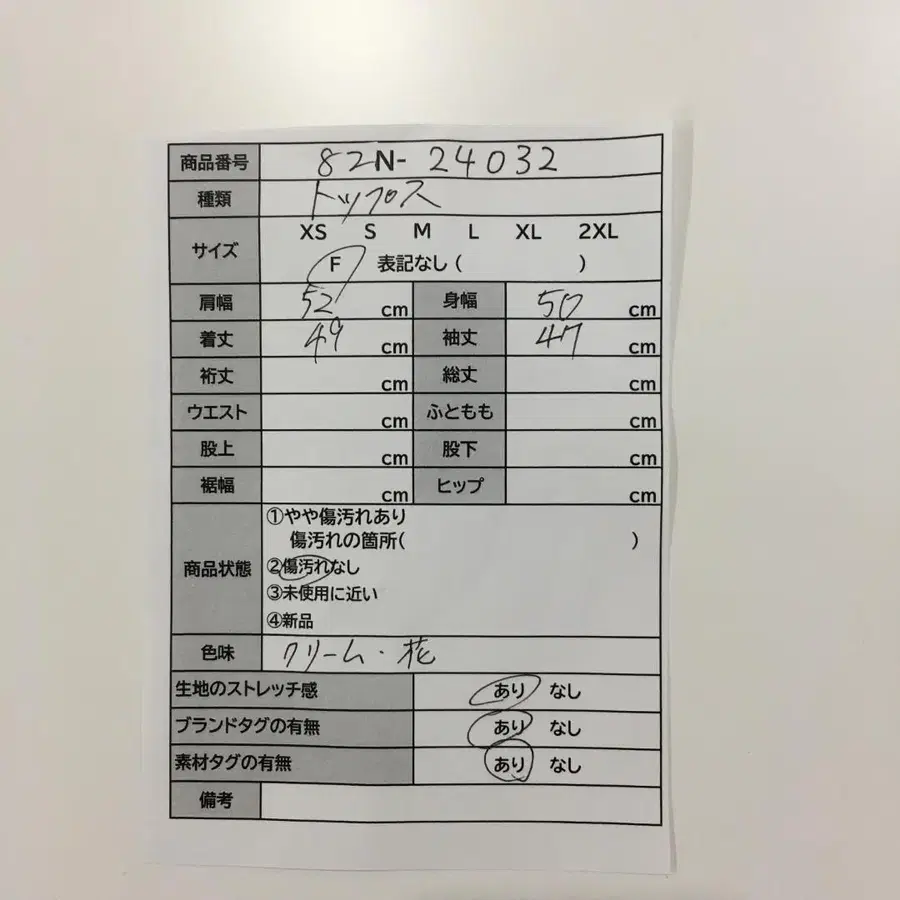 商品番号 82N-24032
種類 トップス
サイズ XS S M L XL 2XL
F 表記なし ( )
肩幅 52 cm 身幅 50 cm
着丈 49 cm 袖丈 47 cm
裄丈 cm 総丈 cm
ウエスト cm ふともも cm
股上 cm 股下 cm
裾幅 cm ヒップ cm
①やや傷汚れあり
傷汚れの箇所( )
商品状態 ②傷汚れなし
③未使用に近い
④新品
色味 クリーム・花
生地のストレッチ感 あり なし
ブランドタグの有無 あり なし
素材タグの有無 あり なし
備考